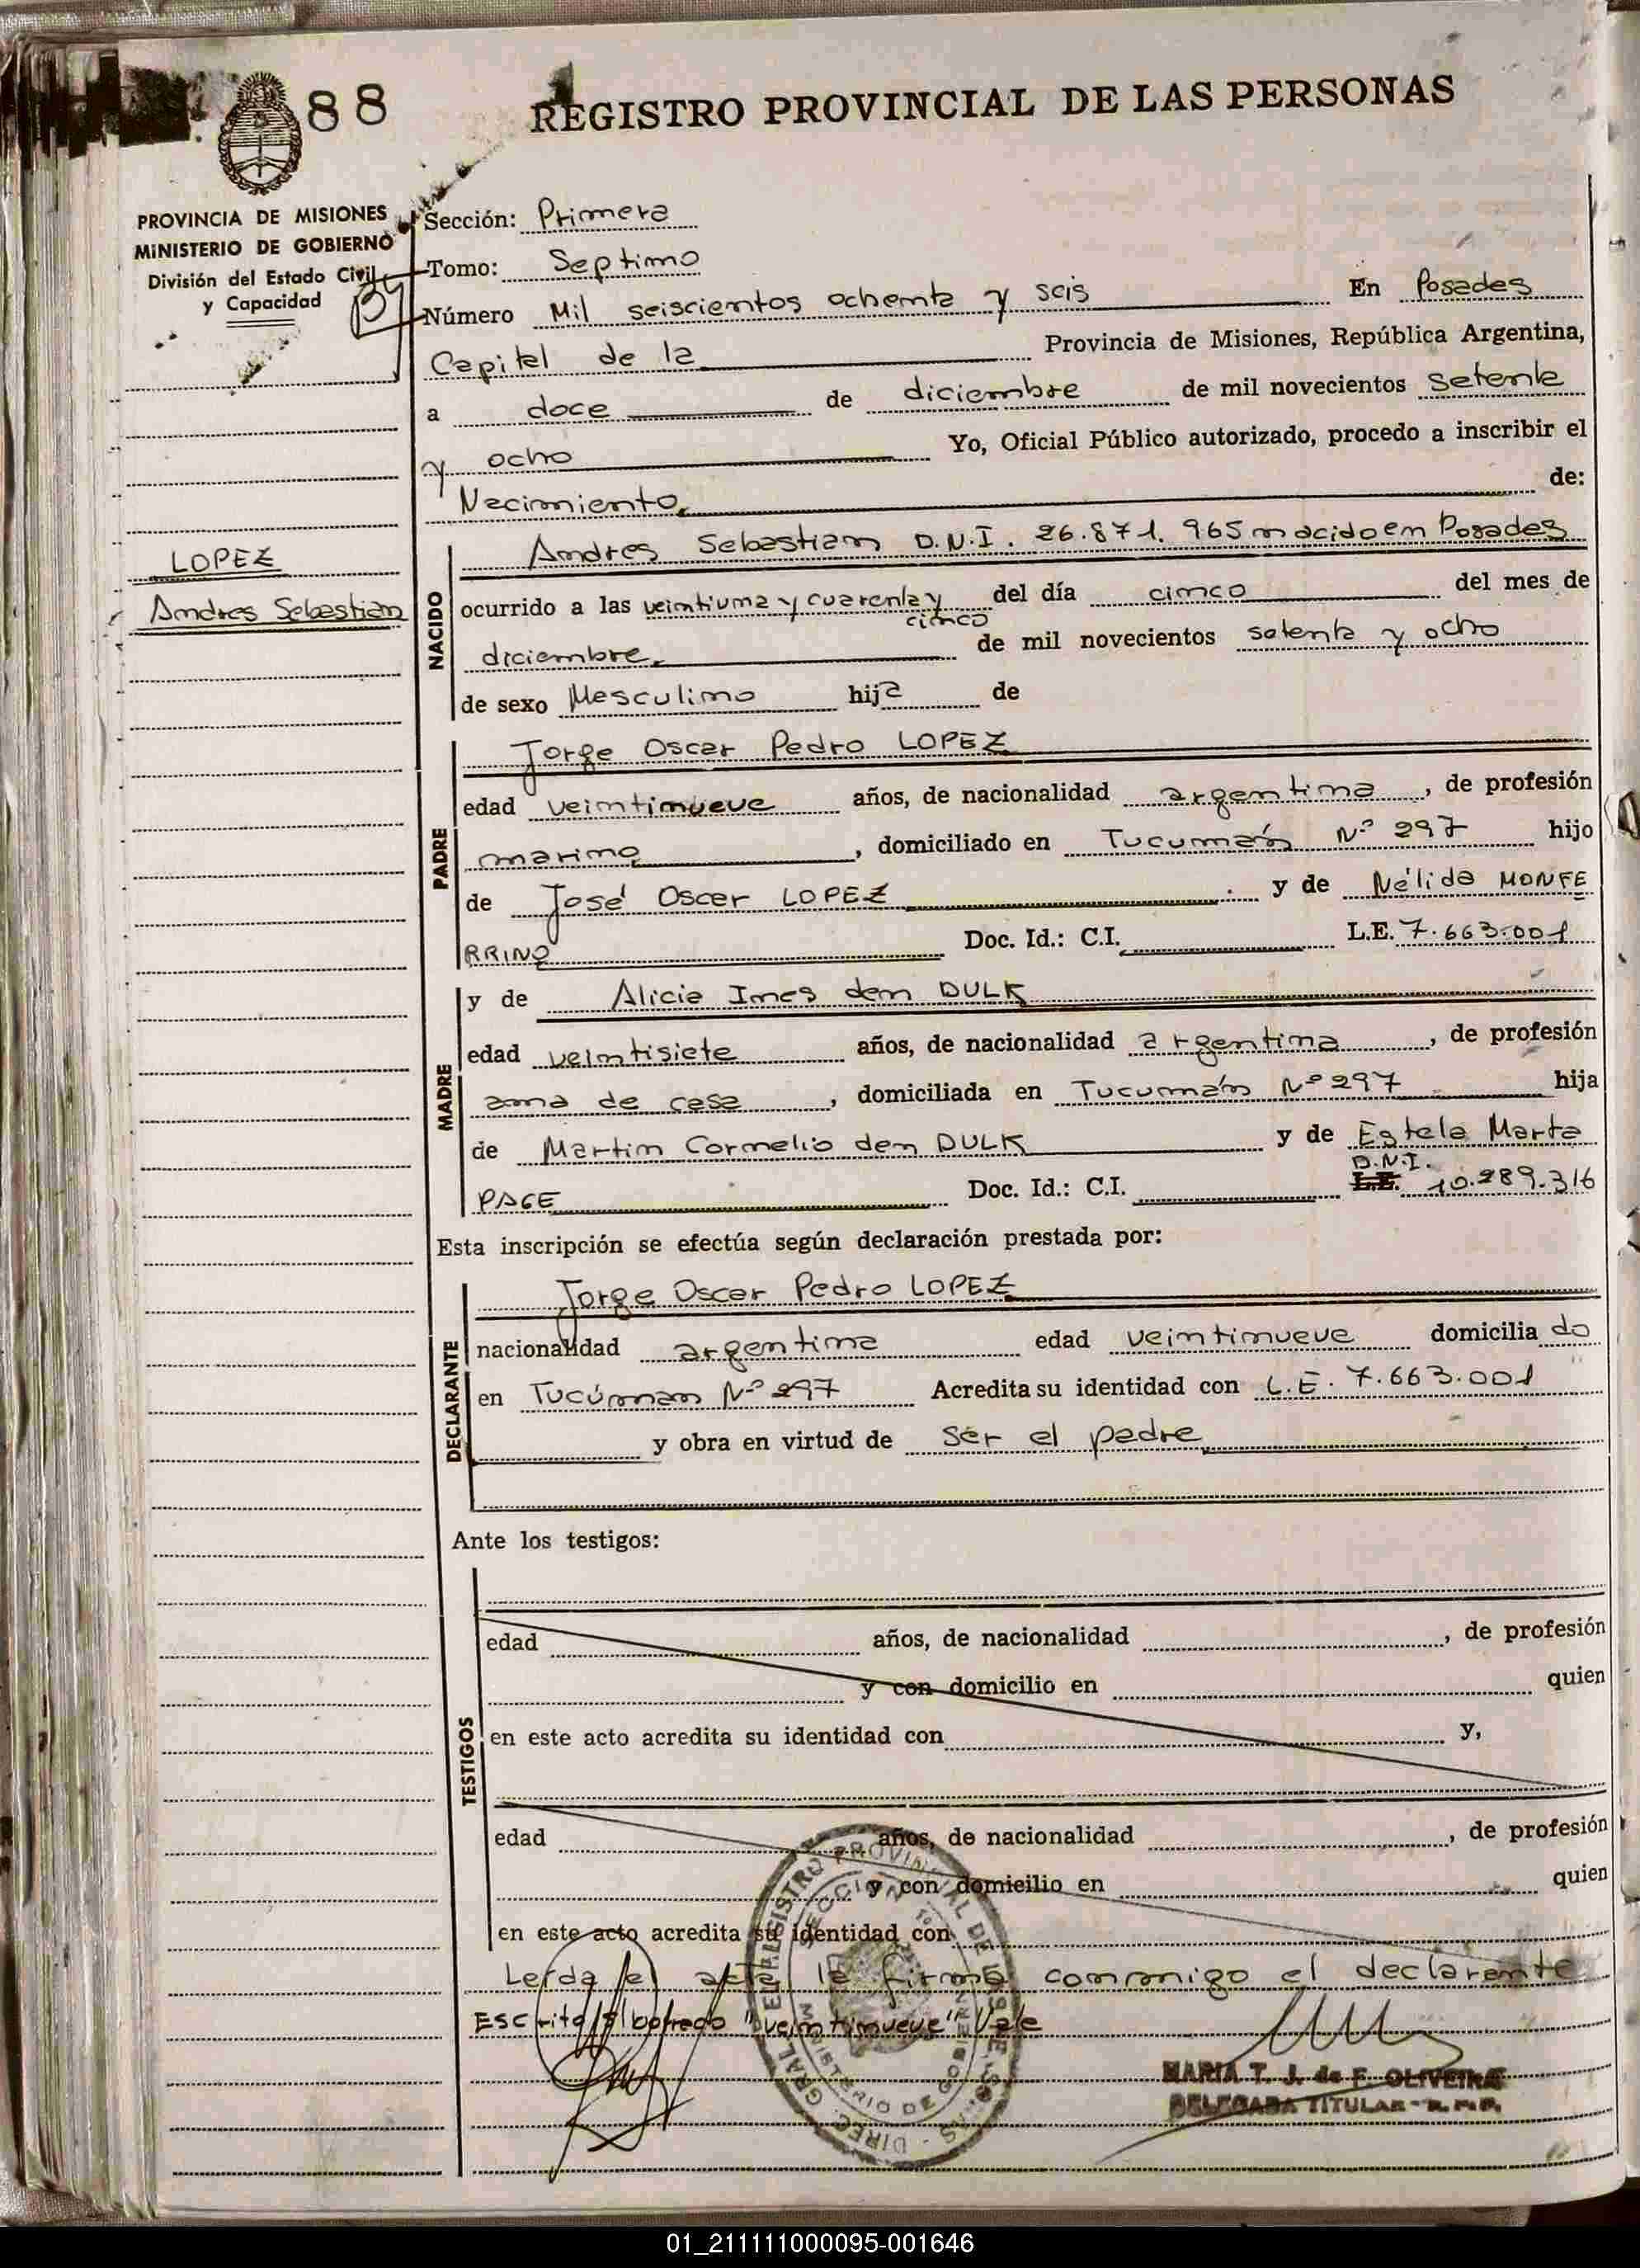 88
REGISTRO PROVINCIAL DE LAS PERSONAS
PROVINCIA DE MISIONES
MINISTERIO DE GOBIERNO
División del Estado Civil
y Capacidad
Sección: Primera
Tomo: Septimo
Número Mil seiscientos ochenta y seis En Posadas
Capital de la Provincia de Misiones, República Argentina,
a doce de diciembre de mil novecientos setenta
y ocho Yo, Oficial Público autorizado, procedo a inscribir el
Nacimiento de:
LOPEZ
Andres Sebastian
NACIDO
Andres Sebastian D.N.I. 26.871.965 nacido en Posadas
ocurrido a las veintiuna y cuarenta y cinco del día cinco del mes de
diciembre de mil novecientos setenta y ocho
de sexo Masculino hija de
PADRE
Jorge Oscar Pedro LOPEZ
edad veintinueve años, de nacionalidad argentina, de profesión
marino, domiciliado en Tucumán Nº 297 hijo
de José Oscar LOPEZ y de Nélida MONFE
RRINO Doc. Id.: C.I. L.E. 7.663.001
MADRE
y de Alicia Ines den DULK
edad veintisiete años, de nacionalidad argentina, de profesión
ama de casa, domiciliada en Tucumán Nº 297 hija
de Martin Cornelio den DULK y de Estela Marta
PAGE Doc. Id.: C.I. L.E. D.N.I. 10.289.316
Esta inscripción se efectúa según declaración prestada por:
DECLARANTE
Jorge Oscar Pedro LOPEZ
nacionalidad argentina edad veintinueve domiciliado
en Tucúman Nº 297 Acredita su identidad con L.E. 7.663.001
y obra en virtud de ser el padre
Ante los testigos:
TESTIGOS
edad años, de nacionalidad , de profesión
y con domicilio en quien
en este acto acredita su identidad con y,
edad años, de nacionalidad , de profesión
y con domicilio en quien
en este acto acredita su identidad con
Leida el acta la firma conmigo el declarante
Escrito s/borrado "veintinueve" Vale
MARIA T. J. de F. OLIVEIRA
DELEGADA TITULAR - R.P.P.
DIREC. GRAL. DEL REGISTRO PROVINCIAL DE LAS PERSONAS
SECCION 1º
MINISTERIO DE GOBIERNO
01_211111000095-001646